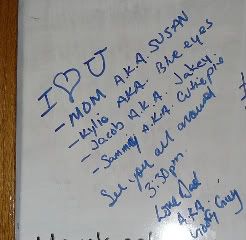 I ♡ U
- MOM A.K.A. SUSAN
- Kylie AKA. Blue eyes
- Jacob A.K.A. Jakey
- Sammy A.K.A. Cutie pie
See you all around
3:30pm.
Love Dad
A.K.A.